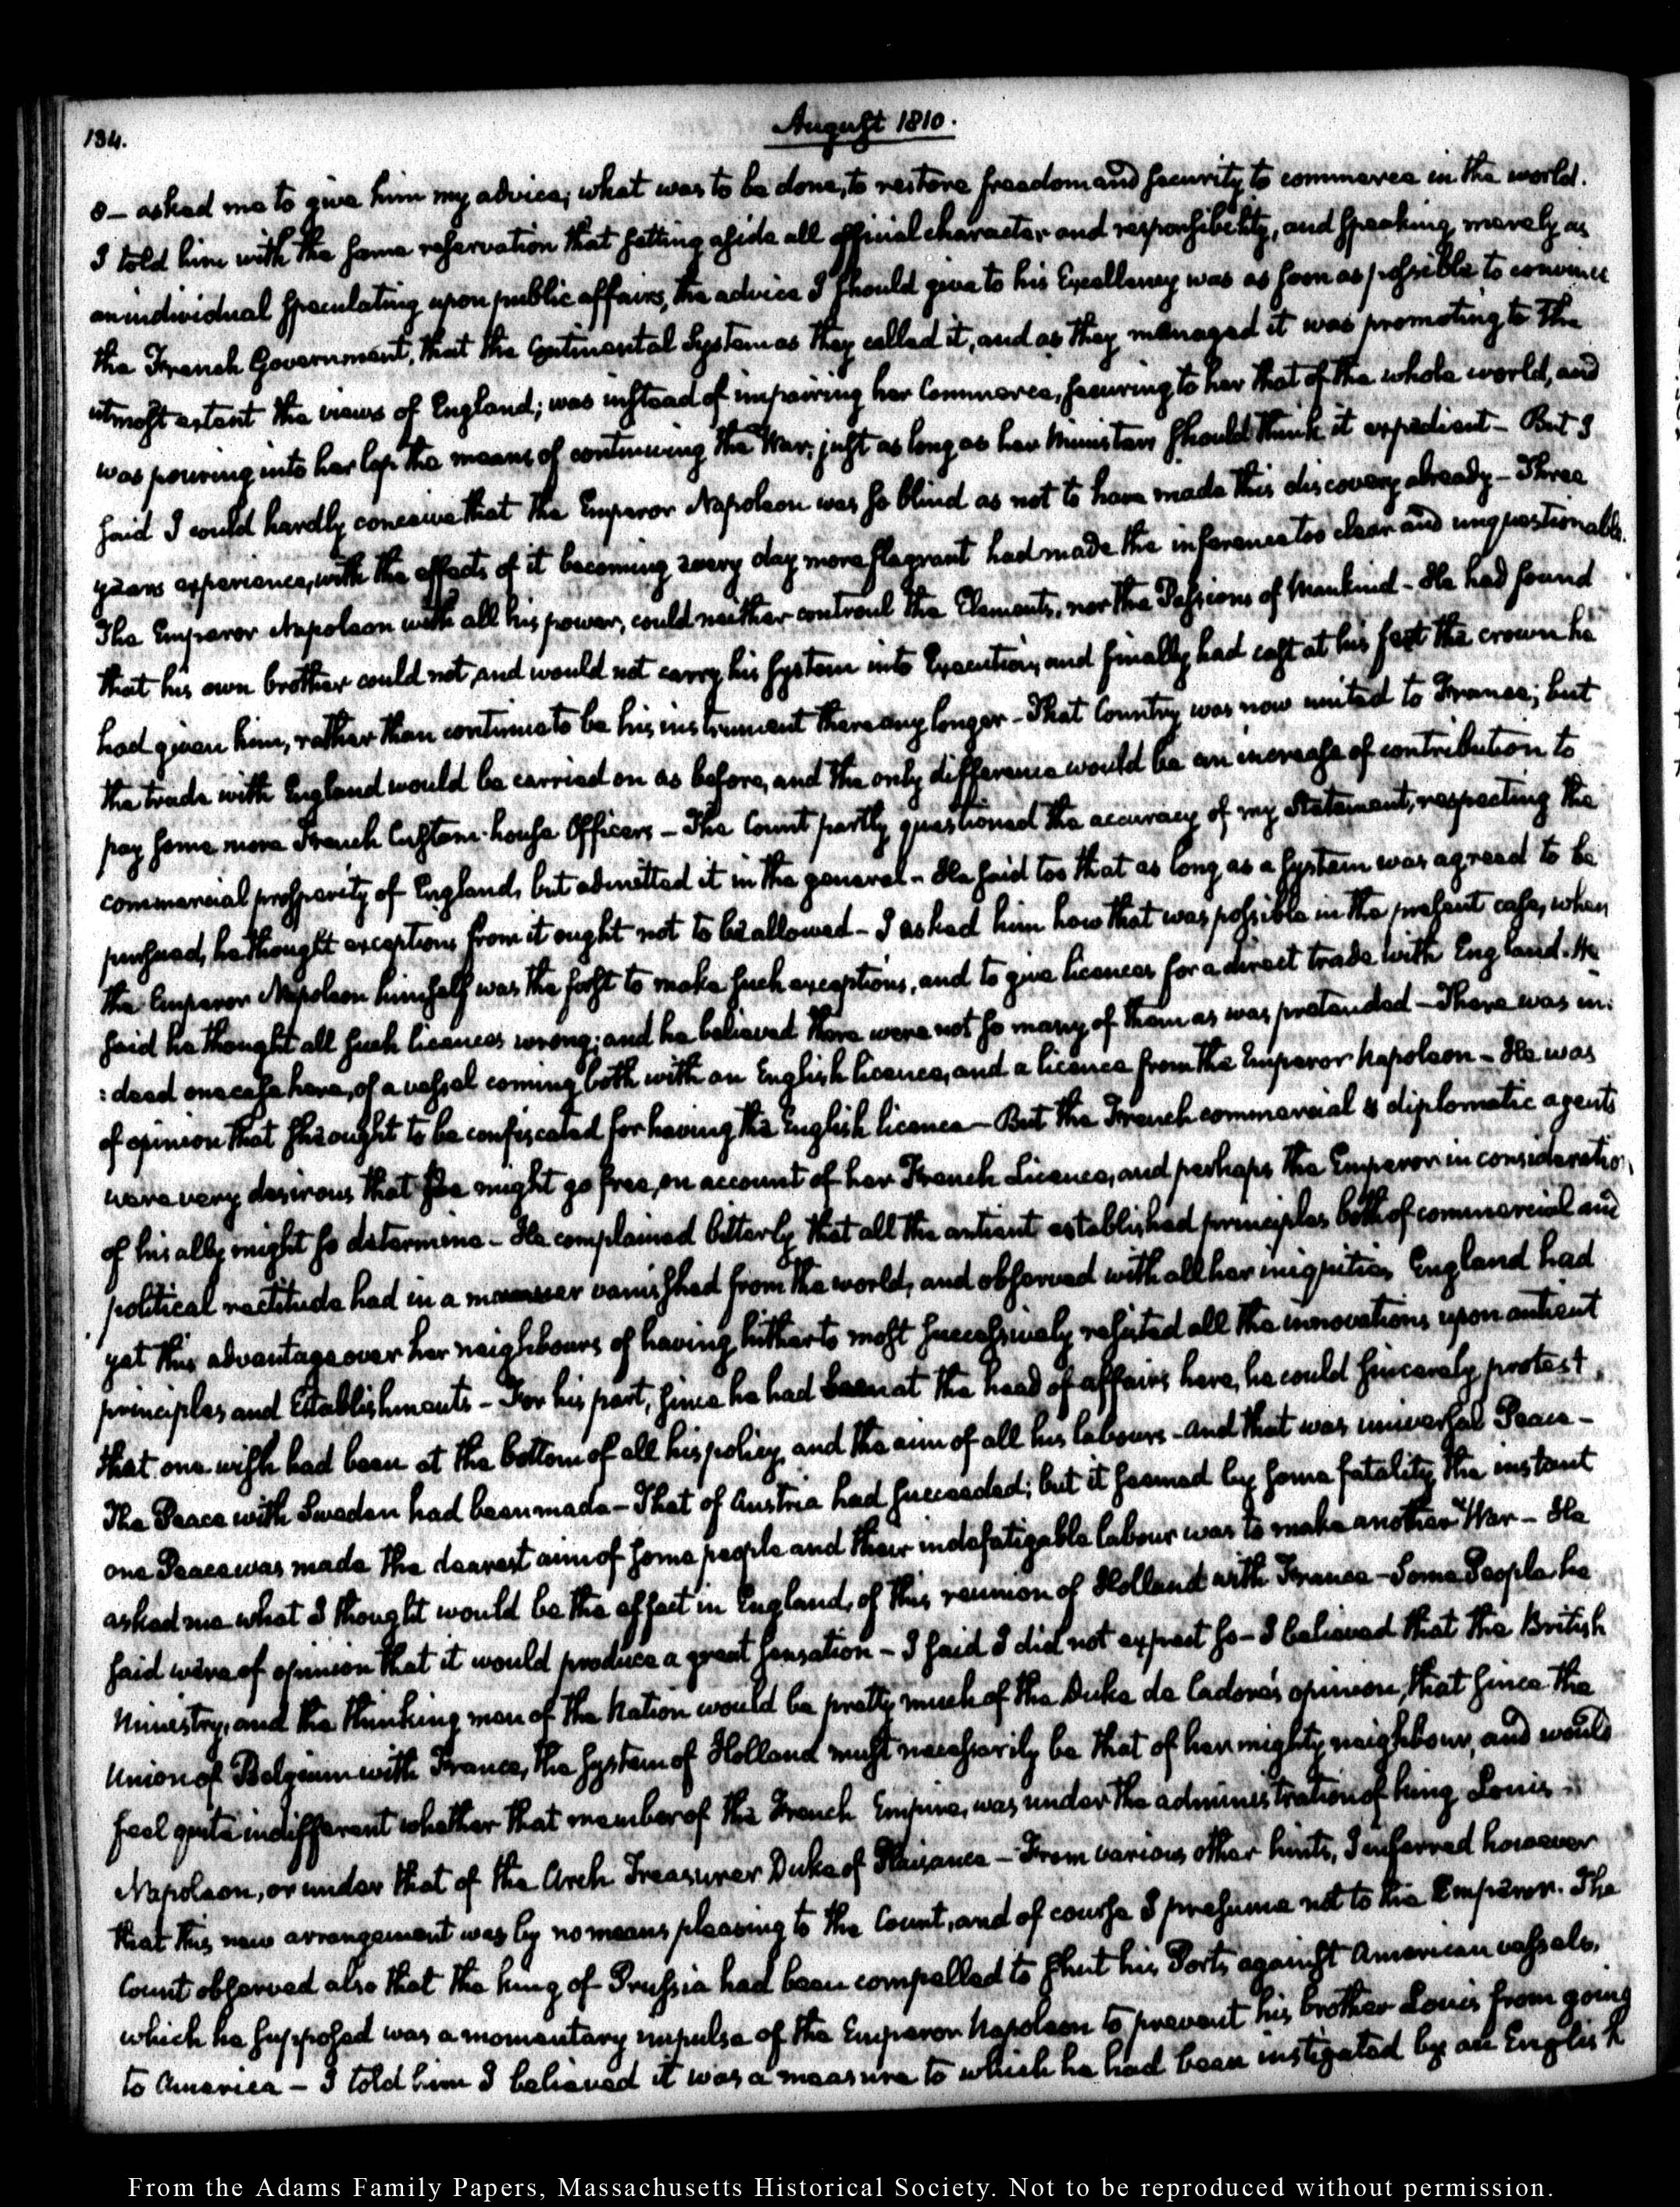 134.
August 1810.
8 — asked me to give him my advice; what was to be done, to restore freedom and security to commerce in the world.
I told him with the same reservation that setting aside all official character and responsibility, and speaking merely as
an individual speculating upon public affairs, the advice I should give to his Excellency was as soon as possible to convince
the French Government, that the Continental System as they called it, and as they managed it was promoting to the
utmost extent the views of England; was instead of impairing her Commerce, securing to her that of the whole world, and
was pouring into her lap the means of continuing the War, just as long as her Ministers should think it expedient — But I
said I could hardly conceive that the Emperor Napoleon was so blind as not to have made this discovery already — Three
years experience, with the effects of it becoming every day more flagrant had made the inference too clear and unquestionable.
The Emperor Napoleon with all his power, could neither controul the Elements, nor the Passions of Mankind — He had found
that his own brother could not, and would not carry his system into Execution, and finally had cast at his feet the crown he
had given him, rather than continue to be his instrument there any longer — That Country was now united to France; but
the trade with England would be carried on as before, and the only difference would be an increase of contribution to
pay some more French Custom-house Officers — The Count partly questioned the accuracy of my Statement, respecting the
commercial prosperity of England, but admitted it in the general — He said too that as long as a system was agreed to be
pursued, he thought exceptions from it ought not to be allowed — I asked him how that was possible in the present case, when
the Emperor Napoleon himself was the first to make such exceptions, and to give licences for a direct trade with England. He
said he thought all such licences wrong; and he believed there were not so many of them as was pretended — There was in:
:deed one case here, of a vessel coming both with an English licence, and a licence from the Emperor Napoleon — He was
of opinion that she ought to be confiscated for having the English licence — But the French commercial & diplomatic agents
were very desirous that she might go free, on account of her French Licence, and perhaps the Emperor in consideration
of his ally might so determine — He complained bitterly that all the antient established principles both of commercial and
political rectitude had in a manner vanished from the world, and observed with all her iniquities England had
yet this advantage over her neighbours of having hitherto most successively resisted all the innovations upon antient
principles and Establishments — For his part, since he had been at the head of affairs here, he could sincerely protest
that one wish had been at the bottom of all his policy, and the aim of all his labours — and that was universal Peace —
The Peace with Sweden had been made — That of Austria had succeeded; but it seemed by some fatality, the instant
one Peace was made the dearest aim of some people and their indefatigable labour was to make another War — He
asked me what I thought would be the effect in England, of this reunion of Holland with France — Some People he
said were of opinion that it would produce a great sensation — I said I did not expect so — I believed that the British
Ministry, and the thinking men of the Nation would be pretty much of the Duke de Cadore's opinion, that since the
Union of Belgium with France, the System of Holland must necessarily be that of her mighty neighbour, and would
feel quite indifferent whether that member of the French Empire, was under the administration of King Louis
Napoleon, or under that of the Arch Treasurer Duke of Plaisance — From various other hints, I inferred however
that this new arrangement was by no means pleasing to the Count, and of course I presume not to the Emperor. The
Count observed also that the King of Prussia had been compelled to shut his Ports against American vessels,
which he supposed was a momentary impulse of the Emperor Napoleon to prevent his brother Louis from going
to America — I told him I believed it was a measure to which he had been instigated by an English
From the Adams Family Papers, Massachusetts Historical Society. Not to be reproduced without permission.